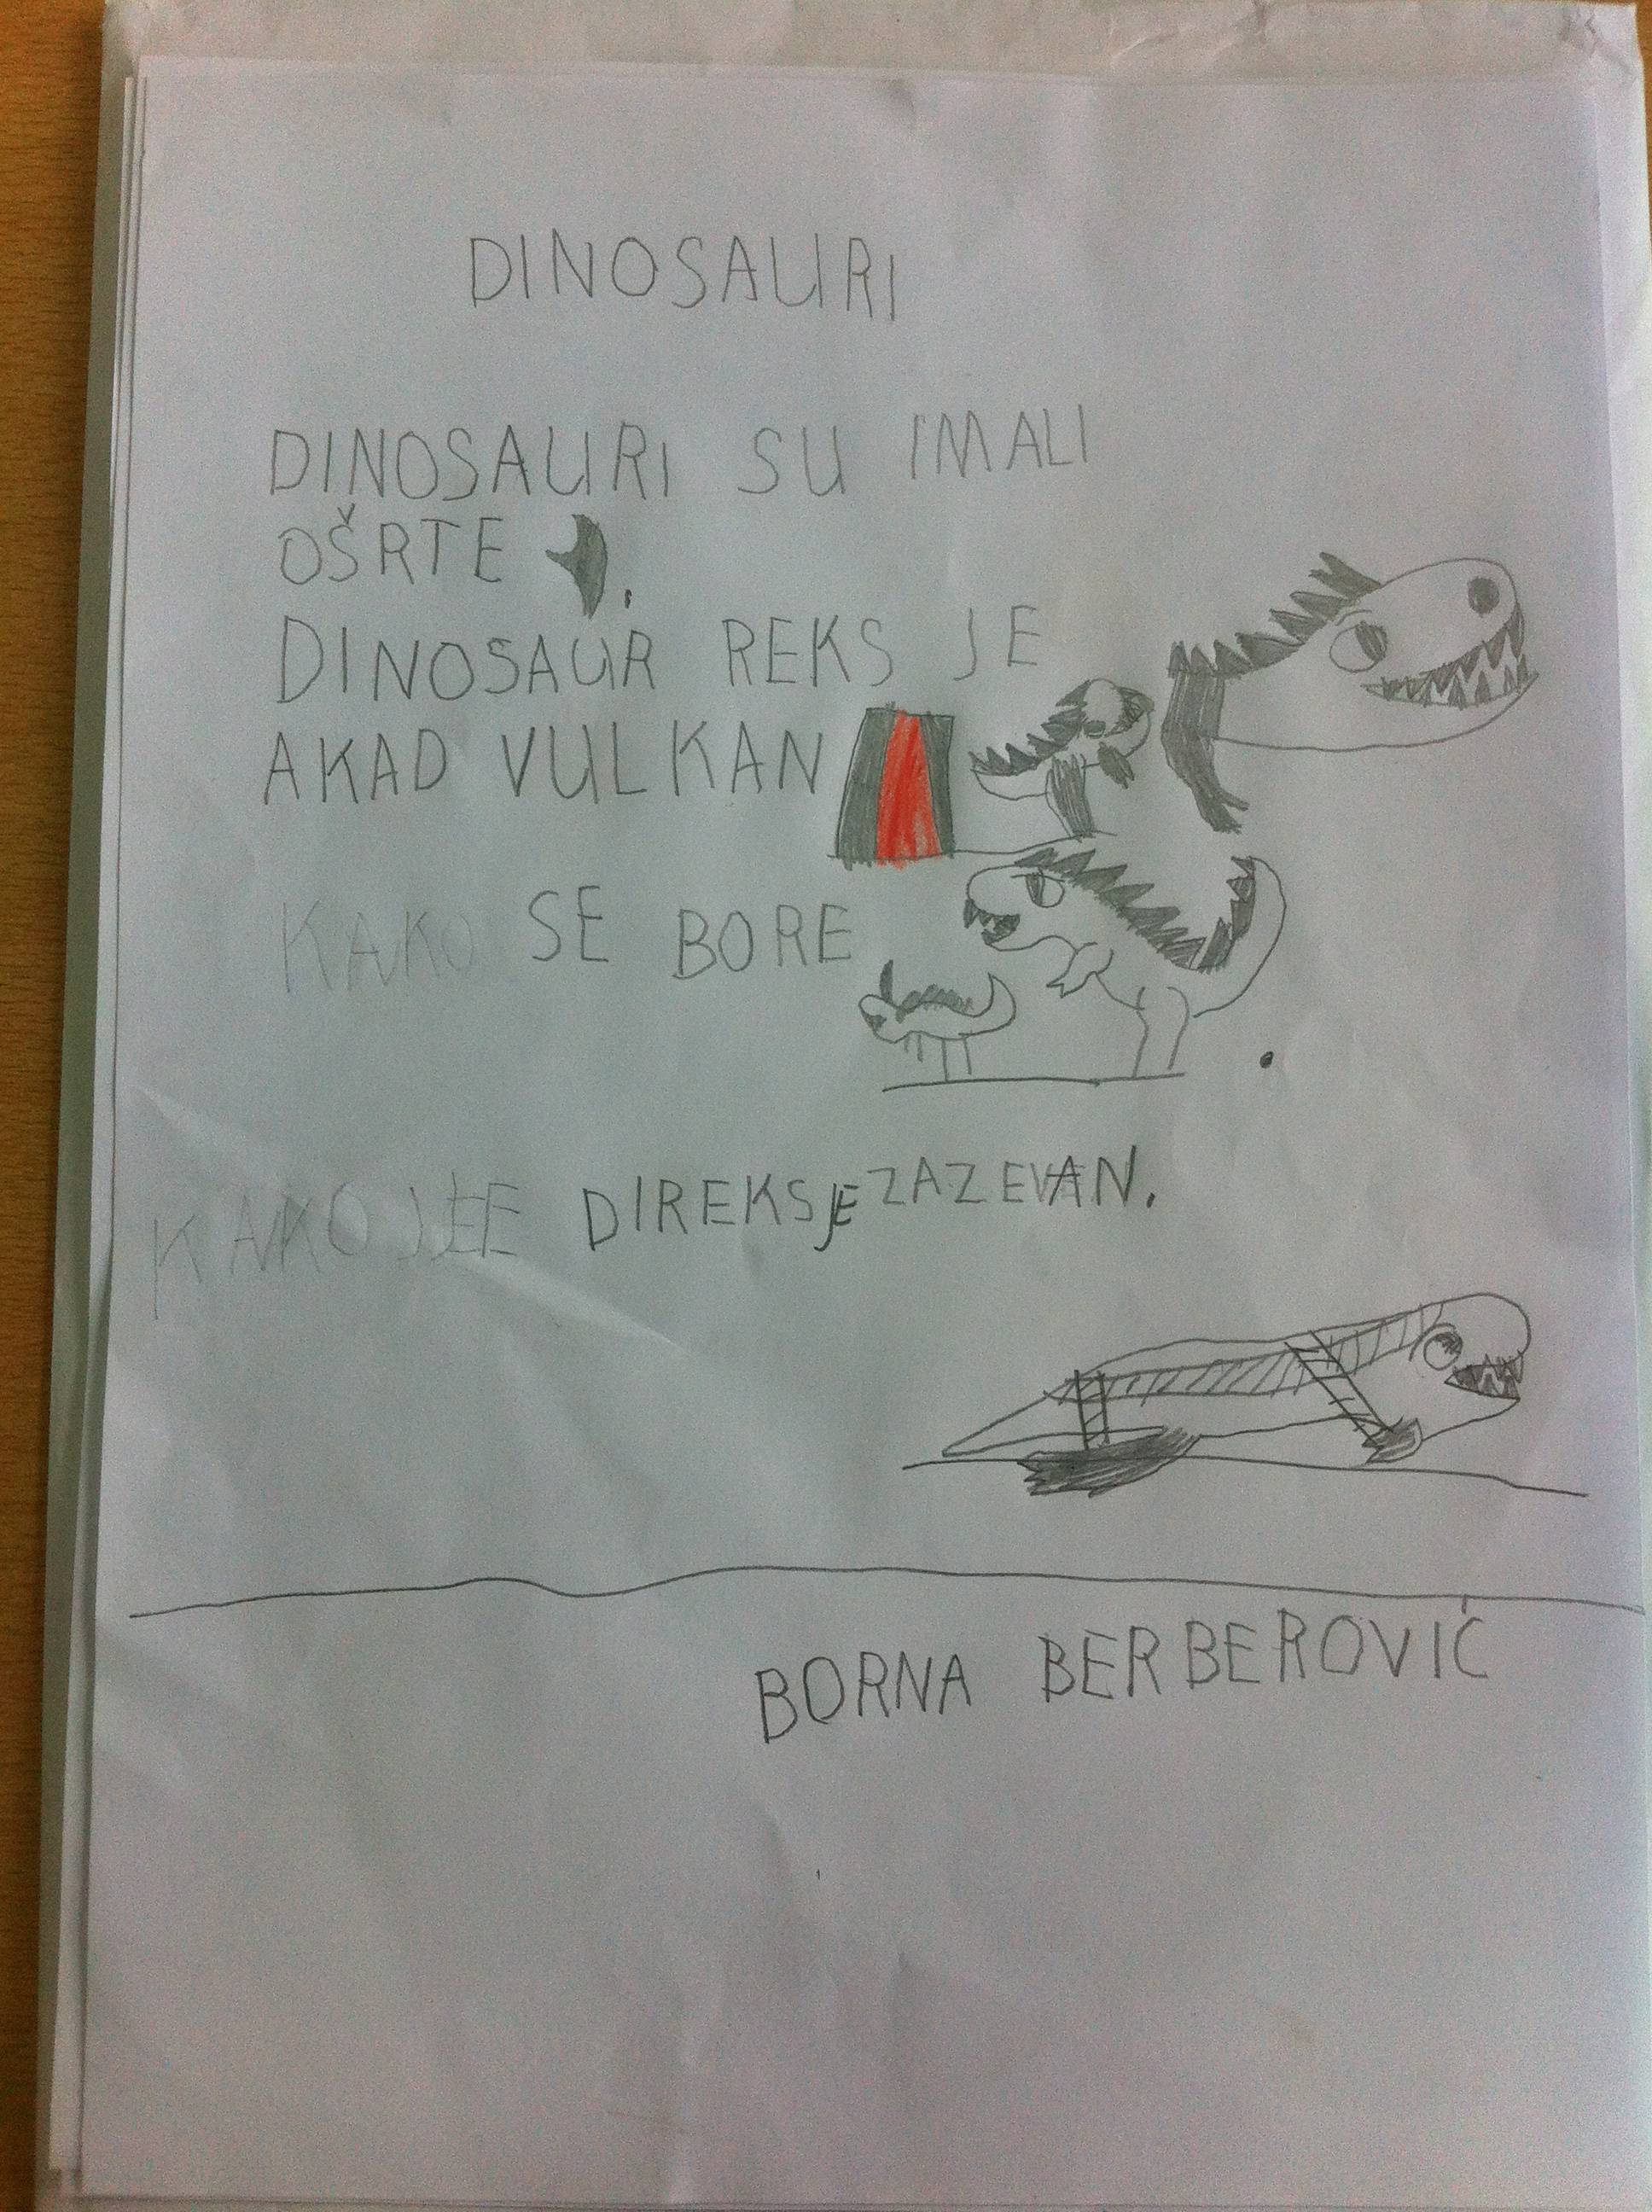 DINOSAURI
DINOSAURI SU IMALI
OŠRTE
DINOSAUR REKS JE
AKAD VULKAN
KAKO SE BORE
KAKO JE DIREKS JE ZAZEVAN.
BORNA BERBEROVIĆ